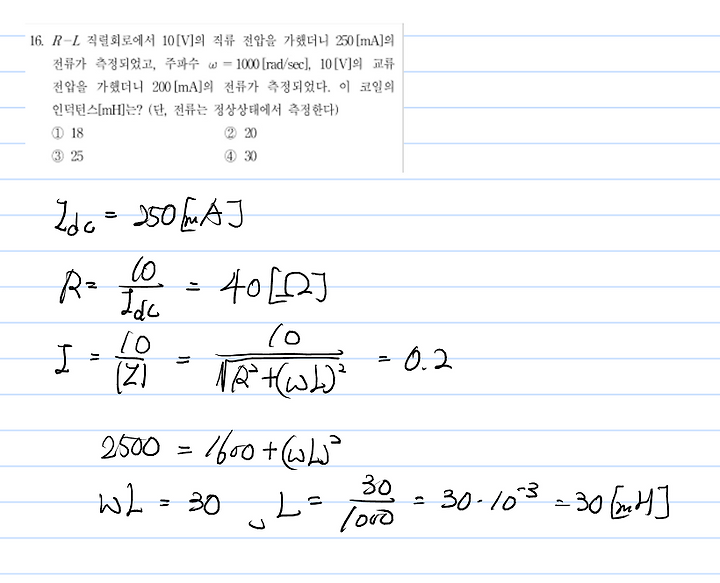 16. R-L 직렬회로에서 10[V]의 직류 전압을 가했더니 250[mA]의
전류가 측정되었고, 주파수 ω = 1000[rad/sec], 10[V]의 교류
전압을 가했더니 200[mA]의 전류가 측정되었다. 이 코일의
인덕턴스[mH]는? (단, 전류는 정상상태에서 측정한다)
① 18 ② 20
③ 25 ④ 30
I_dc = 250[mA]
R = 10/I_dc = 40[Ω]
I = 10/|Z| = 10/√(R²+(ωL)²) = 0.2
2500 = 1600+(ωL)²
ωL = 30, L = 30/1000 = 30·10⁻³ = 30[mH]